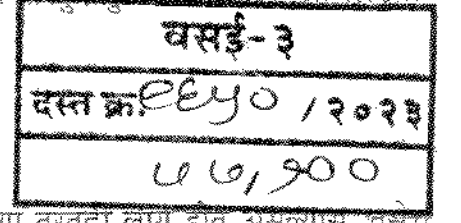 वसई-३
दस्त क्र. ९६५० / २०२३
७७,१००